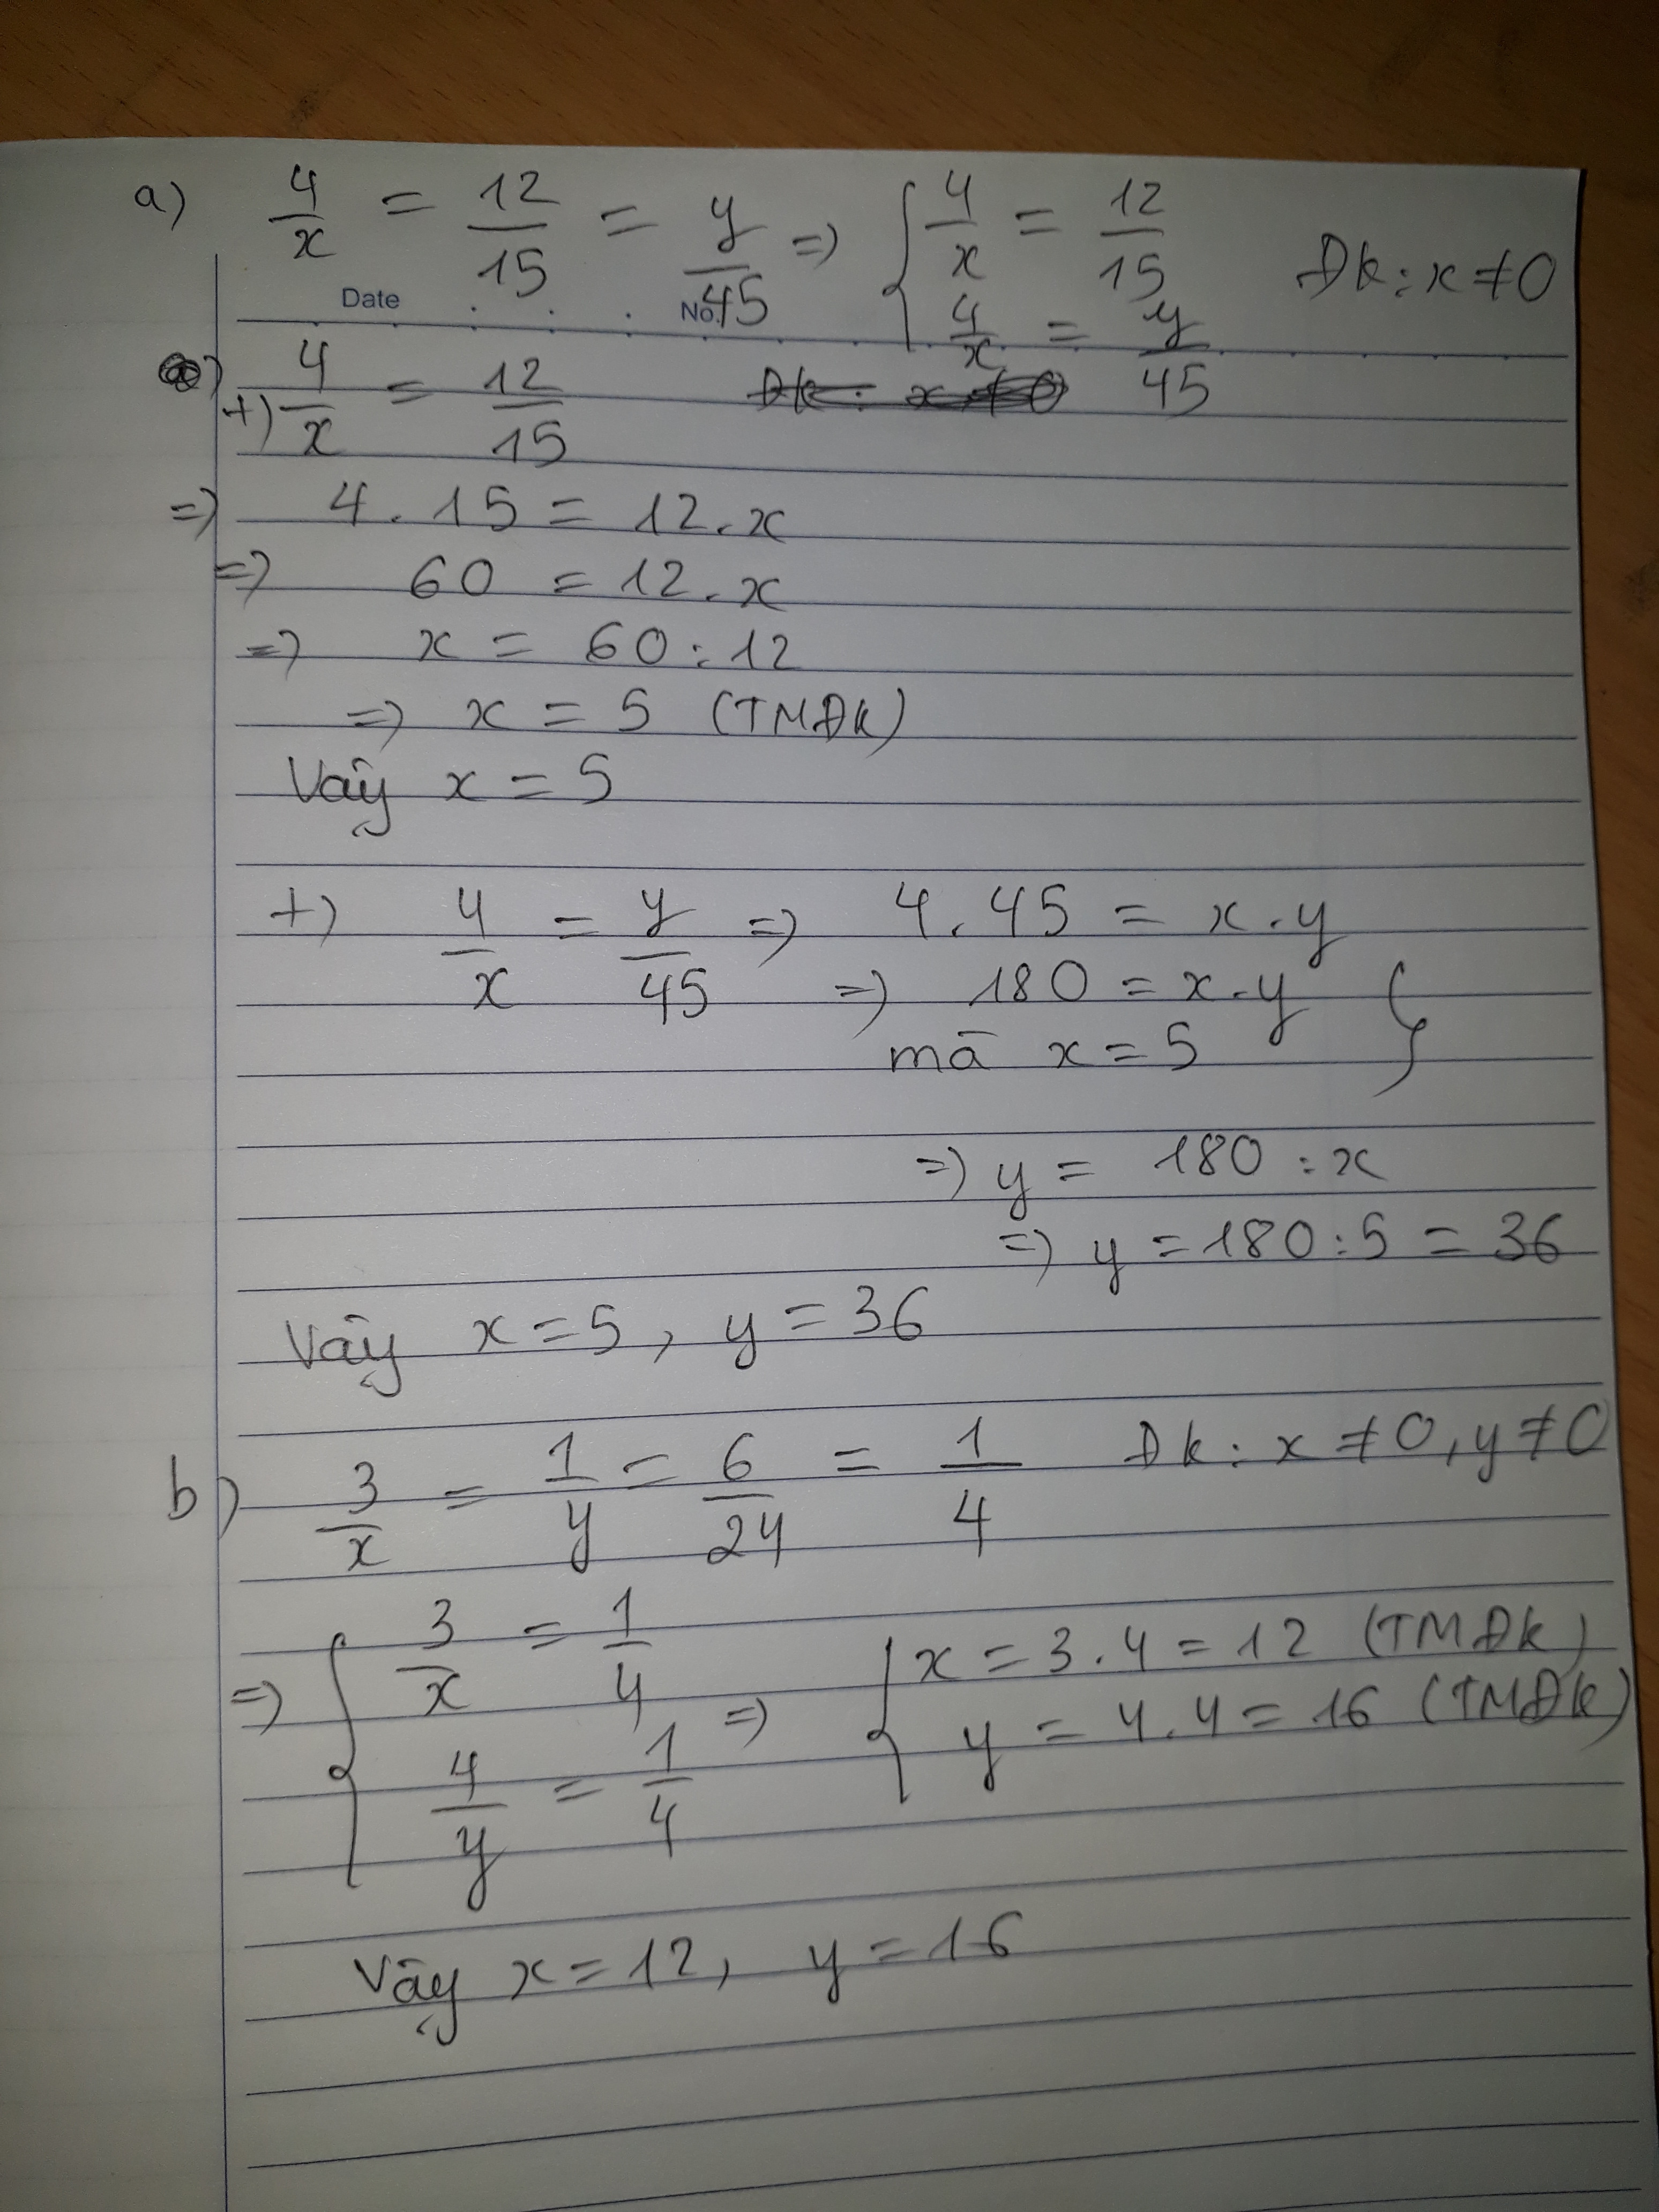 a) 4/x = 12/15 = y/45 => { 4/x = 12/15 Đk: x ≠ 0
4/x = y/45
Date No.
+) 4/x = 12/15
=> 4 . 15 = 12 . x
=> 60 = 12 . x
=> x = 60 : 12
=> x = 5 (TMĐK)
Vậy x = 5
+) 4/x = y/45 => 4 . 45 = x . y
=> 180 = x . y }
mà x = 5
=> y = 180 : x
=> y = 180 : 5 = 36
Vậy x = 5, y = 36
b) 3/x = 1/y = 6/24 = 1/4 Đk: x ≠ 0, y ≠ 0
=> { 3/x = 1/4 => { x = 3 . 4 = 12 (TMĐK)
4/y = 1/4 y = 4 . 4 = 16 (TMĐK)
Vậy x = 12, y = 16